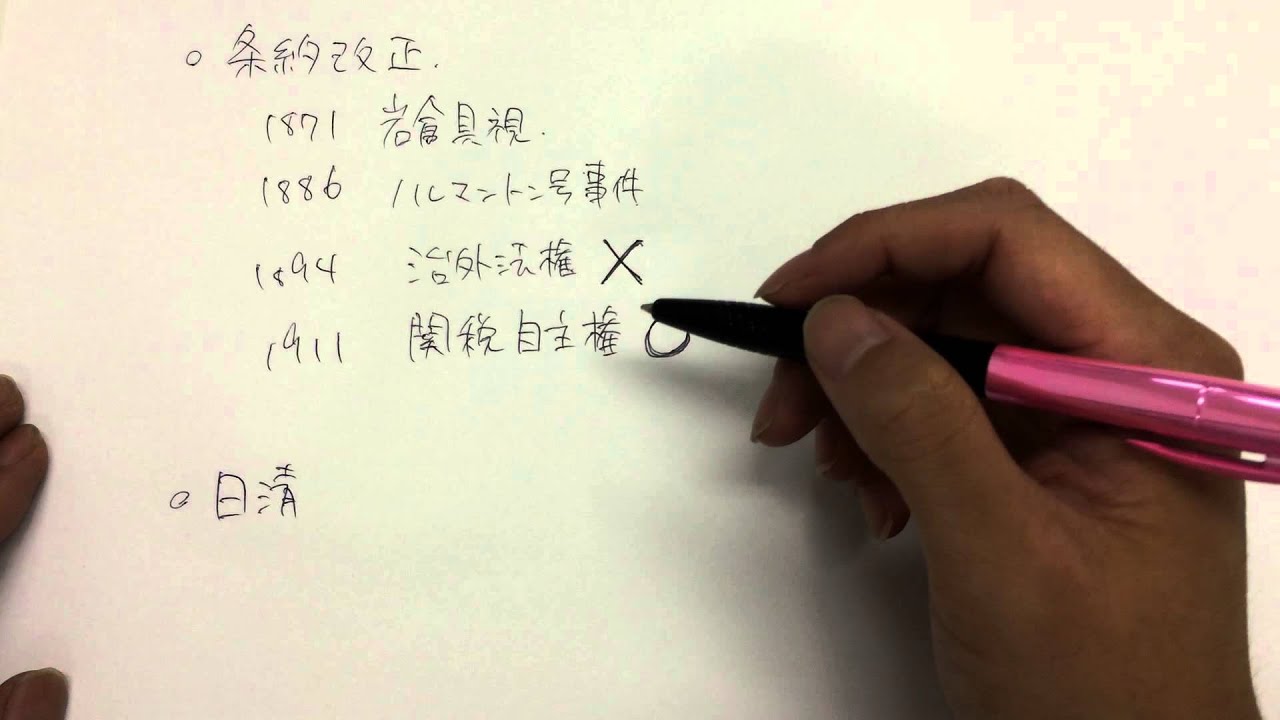 ○ 条約改正.
1871 岩倉具視.
1886 ノルマントン号事件
1894 治外法権 ×
1911 関税自主権 ○
○ 日清